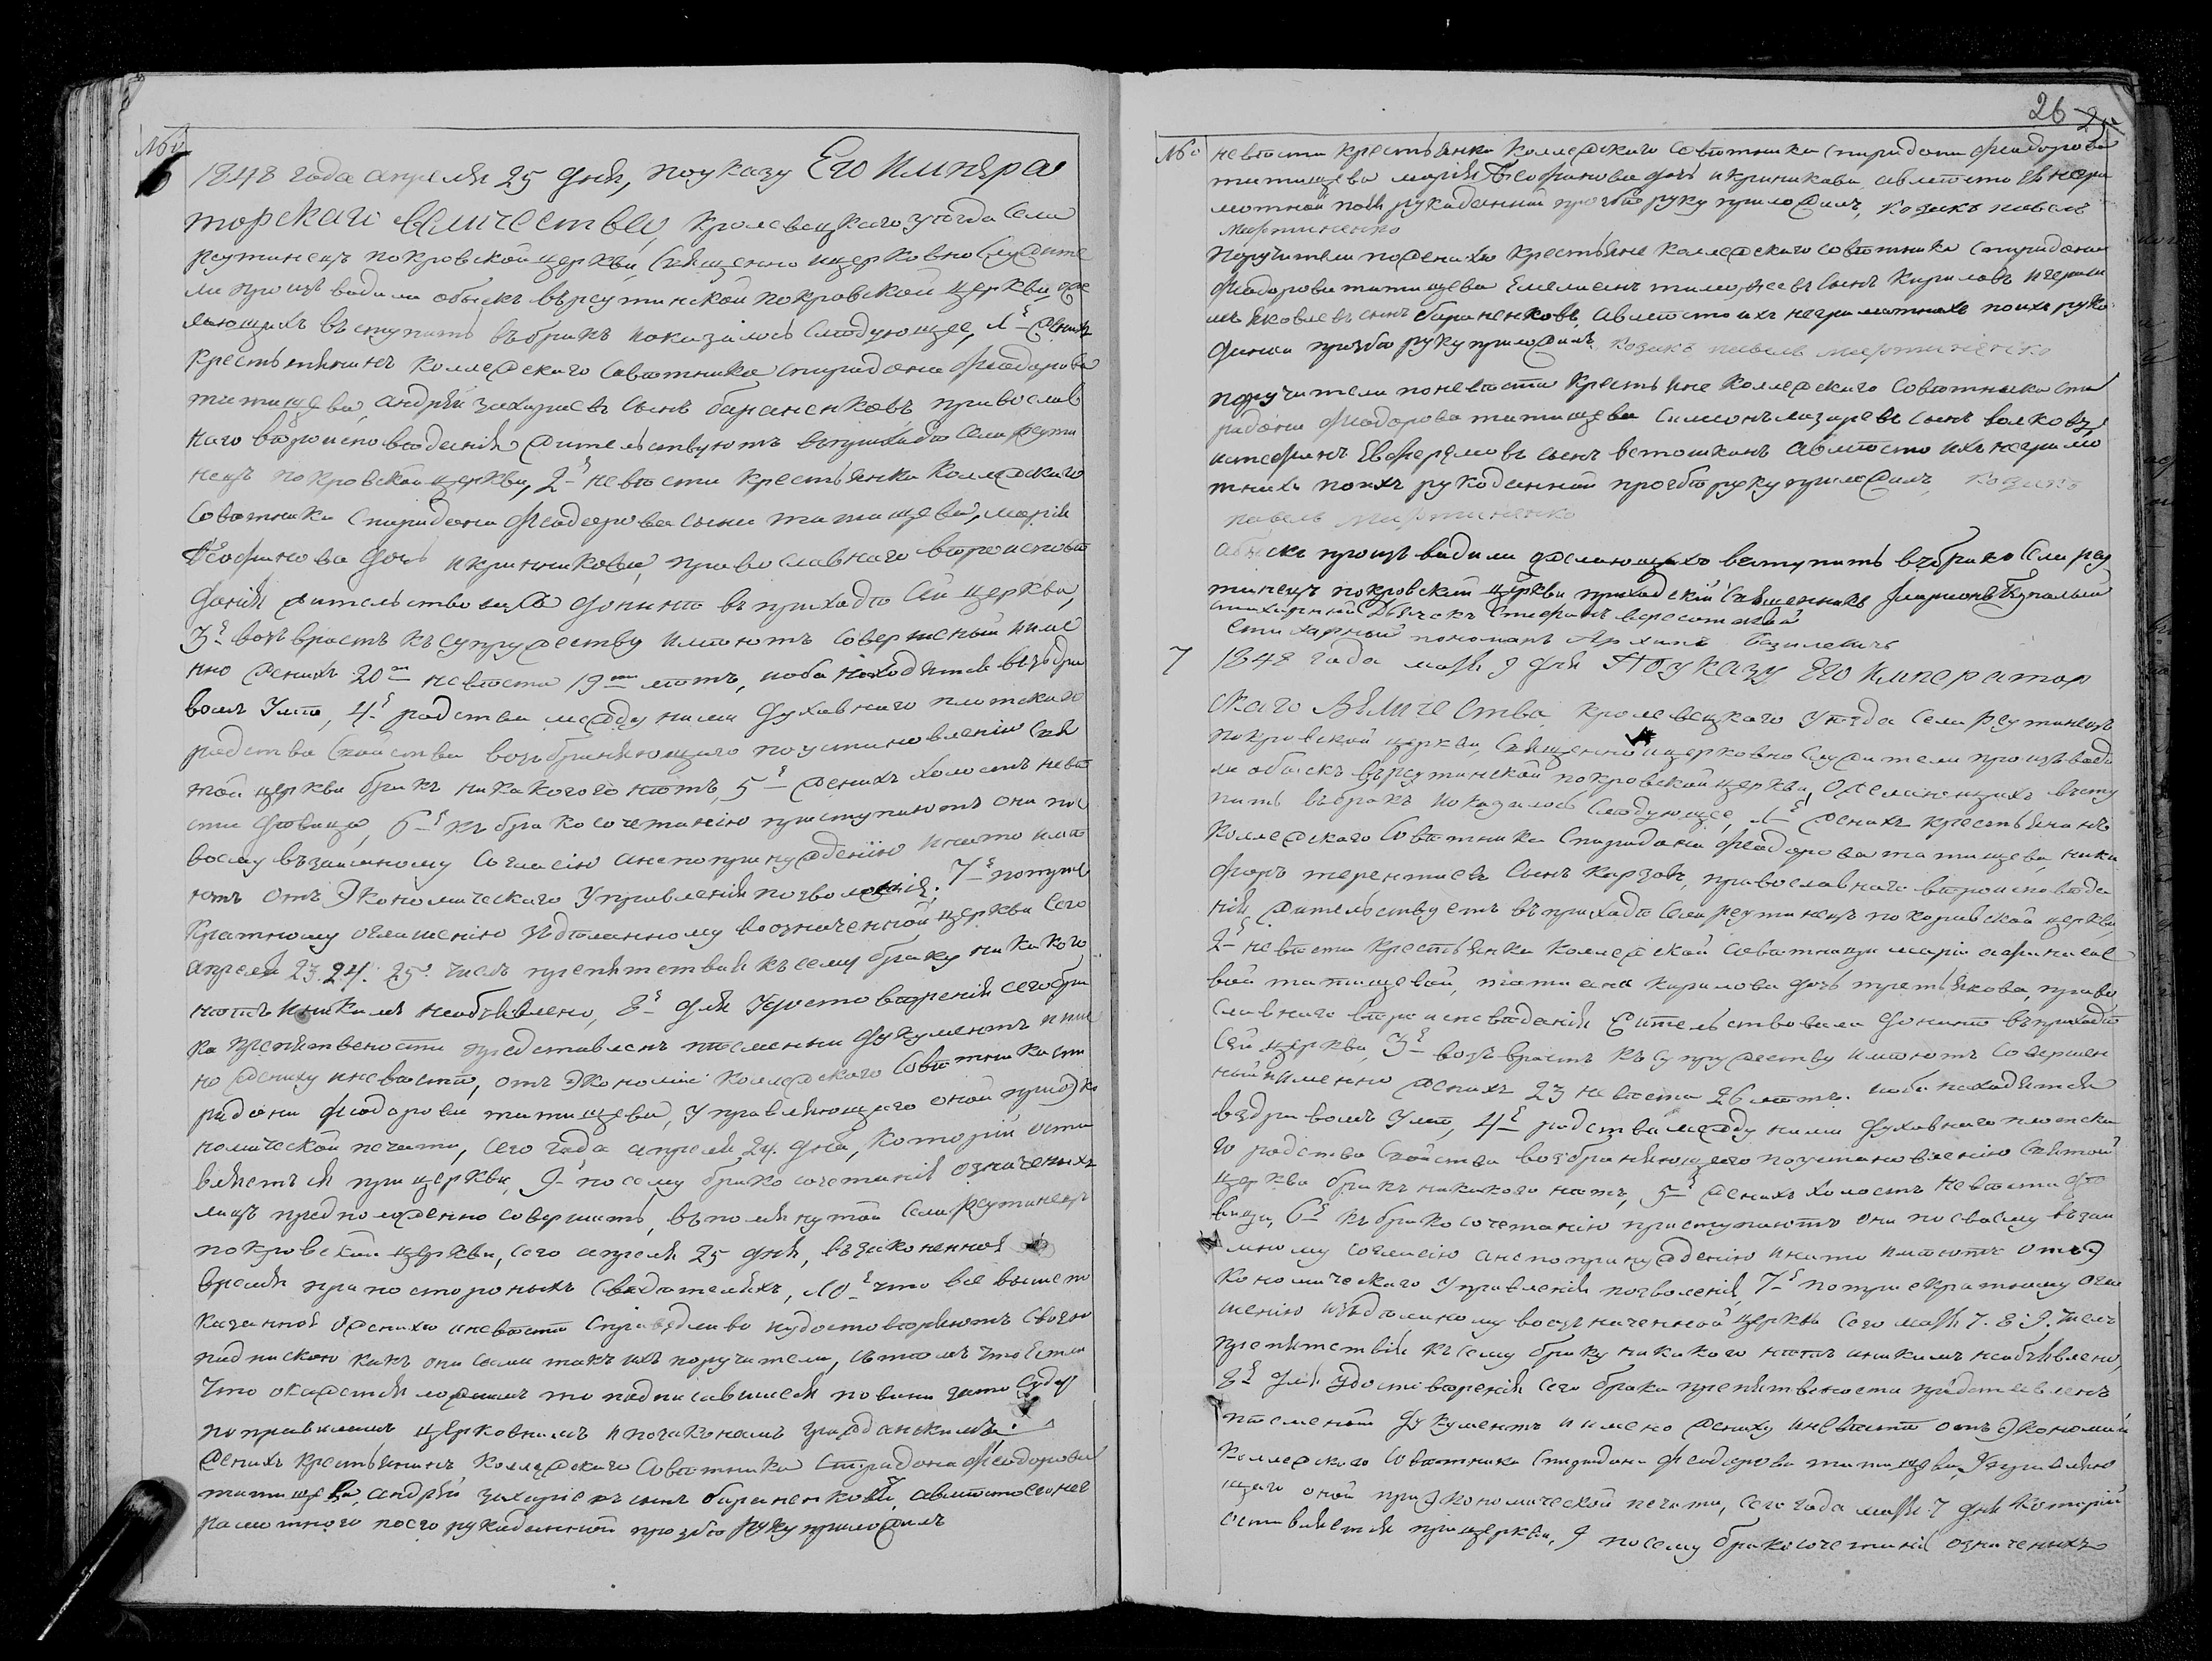 №
6
1848 года апреля 25 дня, поуказу Его Импера
торскаго величества, кролевецкаго уѣзда села
реутинецъ покровской церкви, священно ицерковно служите
ли произъводили обыскъ вьреутинской покровской церкви, оже
лающихъ въступить въбракъ ипоказалось слѣдующее, 1е женихъ
крестьянинъ коллежскаго савѣтника спиридона Феодорова
татищева, андрѣй захариевъ сынъ бараненковъ православ
наго вѣроисповѣданія жительствуютъ въприходѣ села реути
нецъ покровской церкви, 2е невѣста крестьянка коллежскаго
совѣтника спиридона Феодорова сына татищева, марія
Феофанова дочь православнаго вѣроисповѣ
данія жительствовала донинѣ въприходѣ сей церкви,
3е возъврастъ къ супружеству имѣютъ совершеный име
нно женихъ 20ти невѣста 19ти лѣтъ, иоба находятся възъдра
вомъ умѣ, 4е родства между ними духовнаго плотскаго
родства свойства возъбраняющаго поустановленію свя
той церкви бракъ никакогого нѣтъ, 5е женихъ холостъ невѣ
ста дѣвица, 6е къ бракосочетанію приступаютъ они пос
воему възаимному согласію анепопринужденію инато имѣ
ютъ отъ экономическаго управленія позволенія, 7е потрие
кратному оглашенію здѣланному воозначенной церкви сего
апреля 23. 24. 25. числъ препятствія къ сему браку никакого
нѣтъ иникимъ необъявлено, 8е для удостовѣренія сего бра
ка препятвености представленъ писменни документъ име
но жениху иневѣстѣ, отъ экономіи коллежскаго совѣтника спи
ридона Феодорова татищева, управляющаго оной приэко
номической печати, сего года апреля 24. дня, которій оста
вляеться прицеркви, 9е посему бракосочетанія означеныхъ
лицъ предположенно совершить, въпомянутой села реутинецъ
покровской церкви, сего апреля 25 дня, възаконенное
время припостороныхъ свидѣтеляхъ, 10е что все вышепо
казанное оженихѣ иневѣстѣ справедливо иудостовѣряютъ своею
подпискою какъ они сами такъ ихъ поручители, сътѣмъ чтоестли
что окажется ложнимъ то подписавшиеся повини зато суду
поправиламъ церковнимъ ипозаконамъ гражданскимъ:
женихъ крестьянинъ коллежскаго совѣтника спиридона Феодорова
татищева, андрѣй захариевъ сынъ бараненковъ, авмѣсто егонег
рамотного поего рукоданной прозбѣ руку приложилъ
26
№
невѣста крестьянка коллежскаго совѣтника спиридона Феодорова
татищева марія Феофанова дочь авмѣсто ея негра
мотной поея рукоданной прозбѣ руку приложилъ, козакъ павелъ
Мартиненко
поручители поженихѣ крестьяне коллежскаго совѣтника спиридона
Феодорова татищева Емелианъ тимофѣевъ сынъ Кириловъ
яковлевъ сынъ бараненковъ, авмѣсто ихъ неграмотнихъ поихъ руко
данной прозбѣ руку приложилъ козакъ павелъ мартиненко
поручители поневѣстѣ крестьяне коллежскаго совѣтника спи
ридона Феодорова татищева симионъ лазаревъ сынъ волковъ,
истефанъ Евфремовъ сынъ ветошкинъ авмѣсто ихъ неграмо
тнихъ поихъ рукоданной прозбѣ руку приложилъ, козакъ
павелъ мартиненко
обискъ произъвадили желающихъ вступить въбракъ села реу
тинецъ покровской церкви приходскій священникъ
стихарный дьячекъ Стефанъ
стихарный пономаръ Архипъ базилевичъ
7
1848 года маія 9 дня Поуказу Его Император
скаго Величества кролевецкаго уѣзда села реутинецъ
покровской церкви, священно ицерковно служители произъвади
ли обыскъ вьреутинской покровской церкви, ожелающихъ въсту
пить въбракъ ипоказалось слѣдующее, 1е женихъ крестьянинъ
коллежскаго совѣтника спиридона Феодорова татищева, ники
форъ терентиевъ сынъ карзовъ, православнаго вѣроисповѣда
нія, жительствуетъ въприходѣ села реутинецъ покоровской церкви
2е невѣста крестьянка коллежской совѣтници маріи афанасие
вой татищевой, татиана карилова дочь третьякова, право
славнаго вѣроисповѣданія жительствовала донинѣ въприходѣ
сей церкви, 3е возъврастъ къ супружеству имѣютъ совершен
ный именно женихъ 23 невѣста 26 лѣтъ. иоба находятся
въздравомъ умѣ, 4е родства между ними духовнаго плотска
го родства свойства возбраняющаго поустановленію святой
церкви бракъ никакого нѣтъ, 5е женихъ холостъ невѣста дѣ
вица, 6е къ бракосочетанію приступаютъ они посвоему възаи
мному согласію анепопринужденію инато имѣютъ отъэ
кономическаго управленія позволенія, 7е потриекратному огла
шенію издѣланному воозначенной церкви сего маія 7. 8. 9. числъ
препятствія къ сему браку никакого нѣтъ иникимъ необъявлено,
8е для удостовѣренія сего брака препятвености представленъ
писменой документъ иимено жениху иневѣстѣ отъ экономіи
коллежскаго совѣтника спиридона Феодорова татищева, управляю
щаго оной приэкономической печати, сего года маія 7 дня которій
оставляется прицеркви, 9 посему бракосочетанія означеныхъ